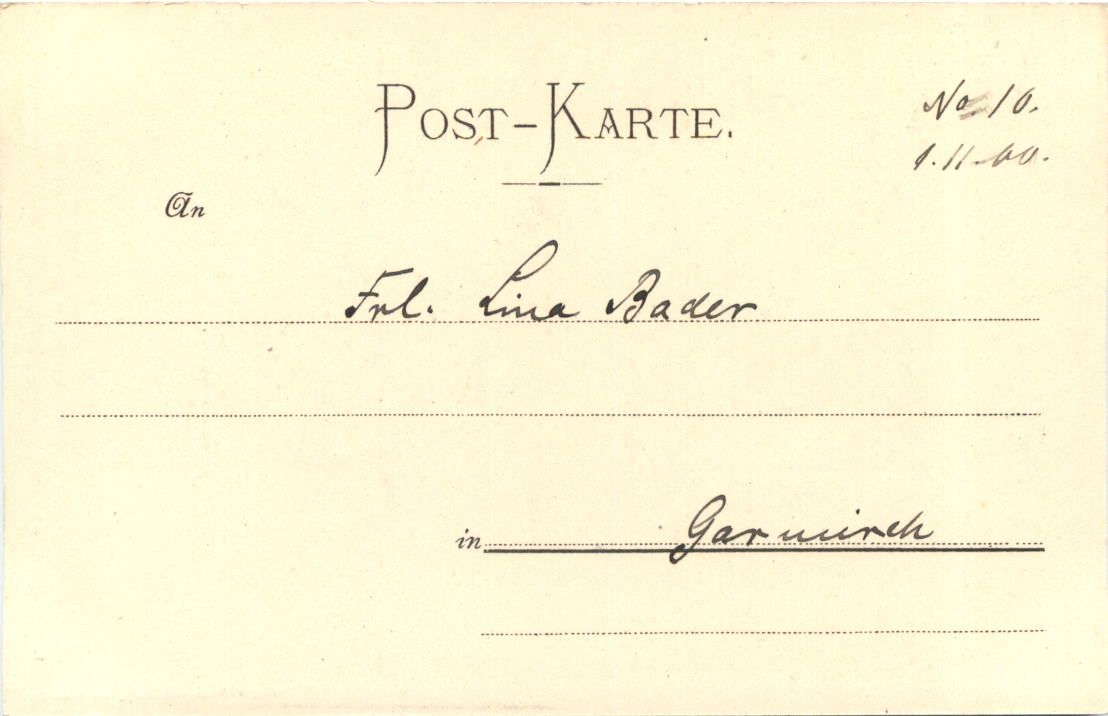 POST-KARTE.
No 10.
1.11.00.
An
Frl. Lina Bader
in Garmisch